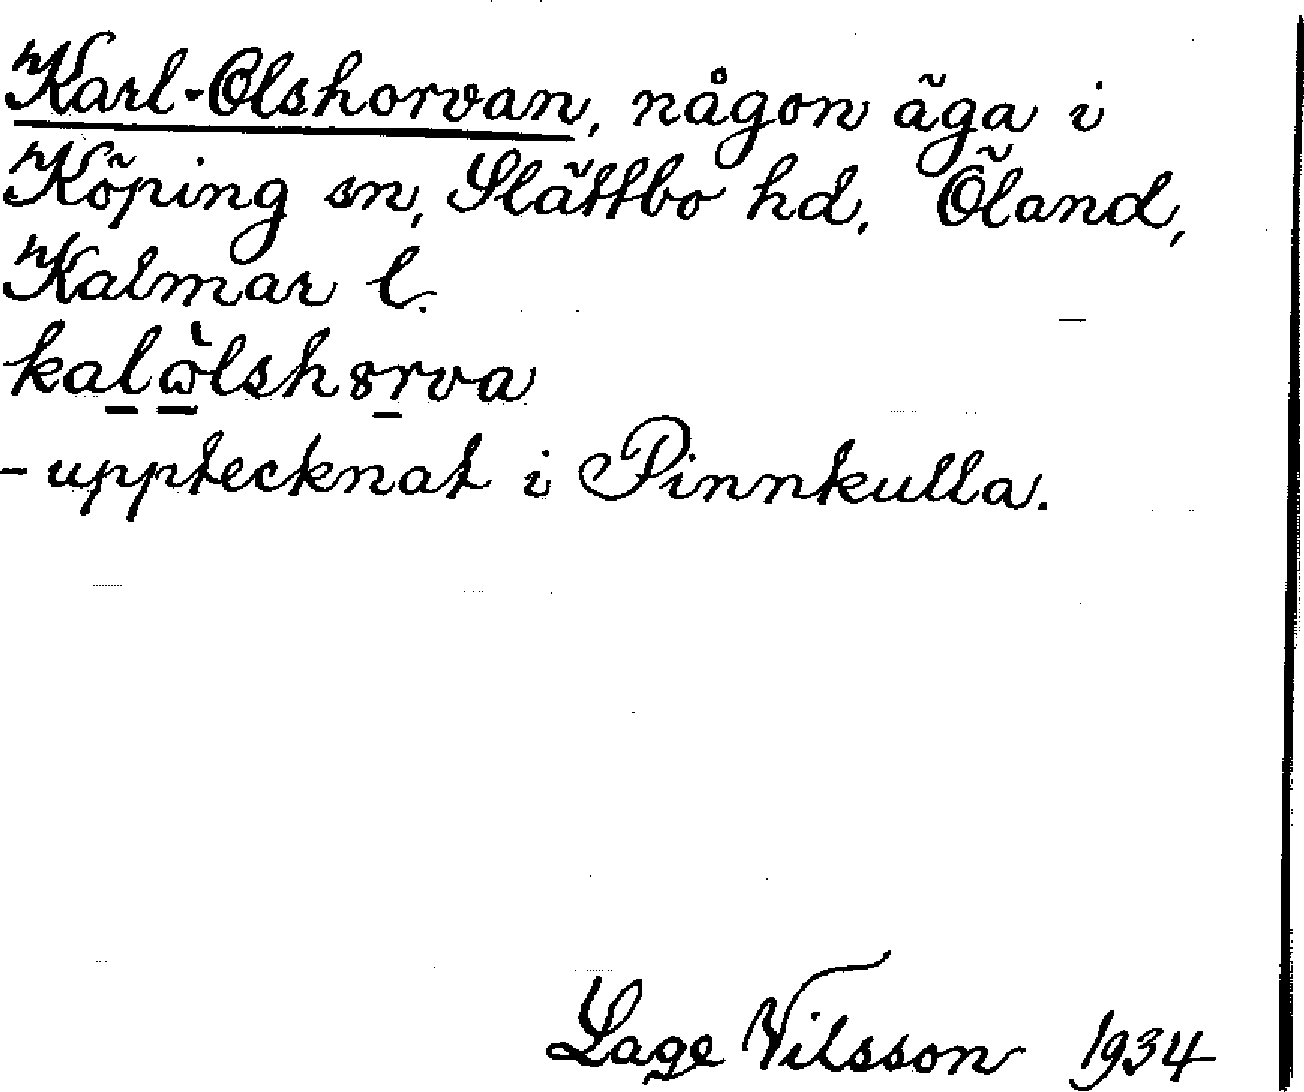 Karl-Olshorvan, någon äga i
Köping sn, Slättbo hd, Öland,
Kalmar l.
kalὼlshȣrva
- upptecknat i Pinnkulla.
Lage Nilsson 1934